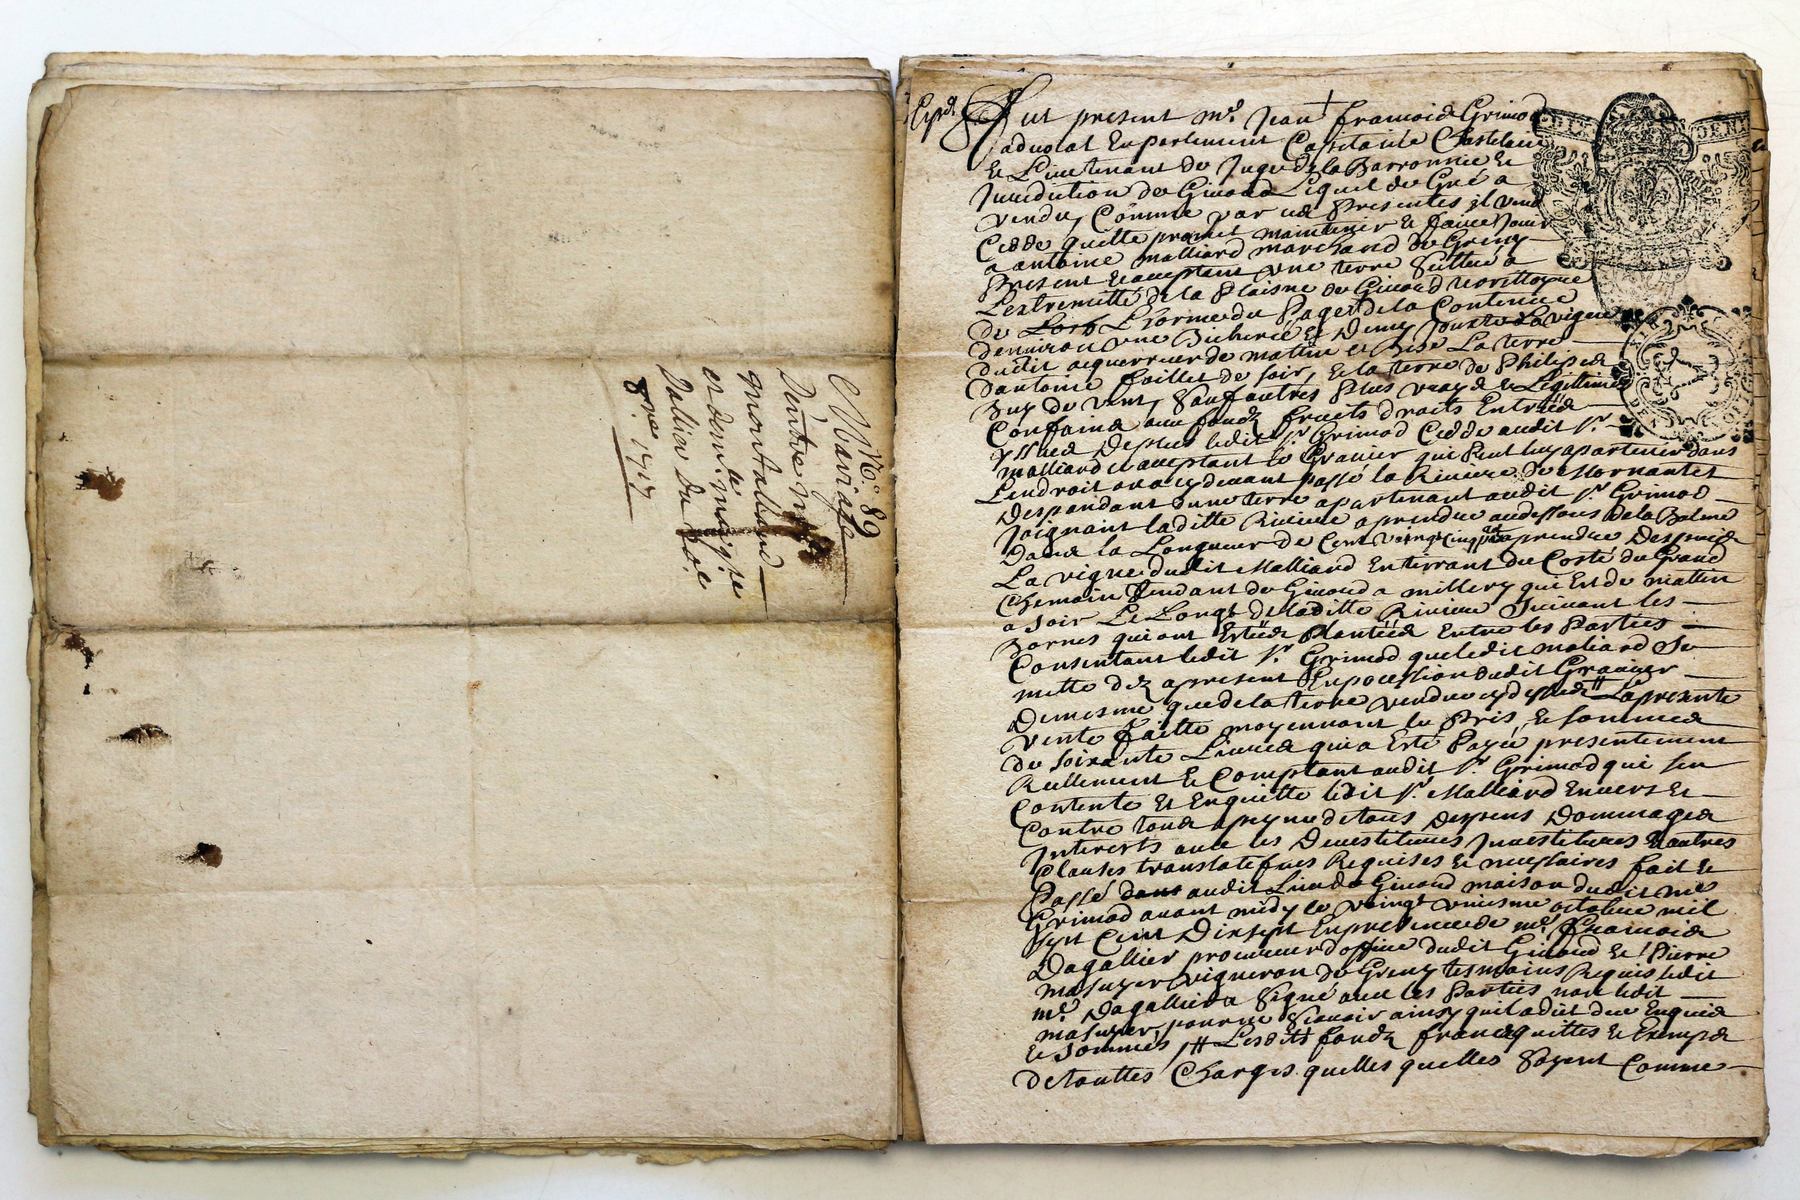 N.° 89
Mariage
D'entre m.re
montaland
et dem.lle mai
Dalier Du
8.bre 1717
Exp.d
Fut present m.e Jean francois Grimod
advocat En parlement Capitaine Chastelain
et Lieutenant de Juge de la Barronnie et
Jurisdiction de Givord Lequel de Gré a
vendu, Comme par ces Presentes il vend
Cedde quitte promet maintenir et faire Jouir
a antoine malliard marchand de Grigny
Present et acceptant une terre Scittuée a
L'extremitté de la Plaisne de Givord
de L'orme du Pager de la Contenue
denviron une Bicherée et Demy Jouxte La vigne
dudit acquerreur de mattin et Bise La terre
dantoine faillet de soir, et la terre de Philipes
de vent, Sauf autres Plus vrays et Legittimes
Confains avec fondz fruits droits Entrées
yssues De plus ledit S.r Grimod Cedde audit S.r
malliard et acceptant le Gravier qui Peut luy apartenir dans
L'endroit ou a cy devant passé la Riviere de Mornantet
Despandant d'une terre apartenant audit S.r Grimod
Joignant laditte Riviere a prendre au dessous de la Balme
Dans la Longueur de Cent Vaingt Cinq pas a prendre Despuis
La vigne dudit Malliard En tirrant du Costé du Grand
Chemain Tendant de Givord a millery qui Est de mattin
a soir Le Long de laditte Riviere Suivant les
Bornes qui ont Estées Plantées Entre les Parties
Consentant ledit S.r Grimod que ledit maliard Se
mette dez apresent En possession dudit Gravier
De mesme que de la terre vendue cy dessus # La presente
vente faitte moyennant le Pris et somme
de soixante Livres qui a Esté Payée presentement
Reellement et Comptant audit S.r Grimod qui s'en
Contente et En quitte ledit S.r Malliard Envers et
Contre tous a peyne de tous Despens Dommages
Interests avec les Devestitures Investitures et autres
Clauses translatifves Requises et necessaires fait et
Passé dans audit Lieu de Givord maison dudit m.e
Grimod avant midy le vaingt uniesme octobre mil
sept Cent Dixsept En presence de m.e francois
Dagallier procureur d'office dudit Givord et Pierre
masuyer vigneron de Grigny tesmoins Requis ledit
m.e Dagallier a Signé avec les Parties non ledit
masuyer pour ne Scavoir ainsy quil a dit de ce Enquis
et sommés /# Lesdits fondz francs quittes et Exemps
de touttes Charges quelles quelles Soyent Comme